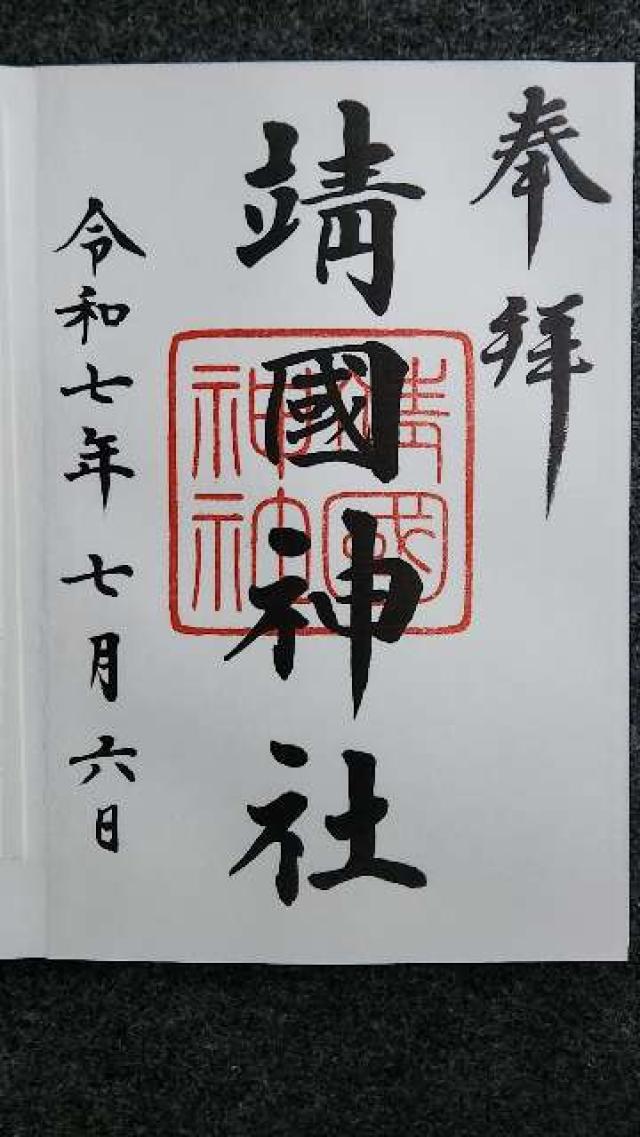 奉拜
靖國神社
靖國
神社
令和七年七月六日